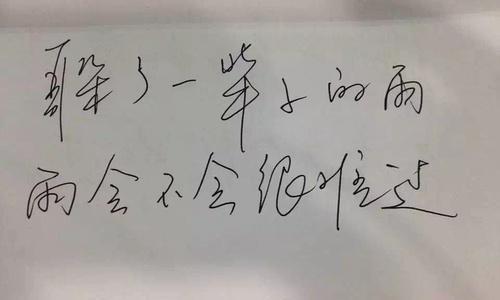 躲了一辈子的雨
雨会不会很难过